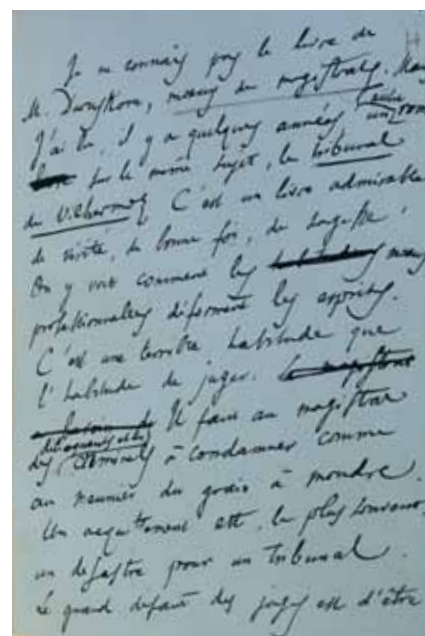 Je ne connais pas le livre de
M. mœurs des magistrats. Mais
J'ai lu, il y a quelques années, un rom
sur le même sujet, le tribunal
de C'est un livre admirable
de vérité, de bonne foi, de sagesse.
On y voit comment les mœurs
professionnelles déforment les esprits.
C'est une terrible habitude que
l'habitude de juger. Le magistrat
Il faut au magistrat
délinquants et des
des criminels à condamner comme
au meunier du grain à moudre.
Un acquittement est, le plus souvent,
un désastre pour un tribunal.
Le grand défaut des juges est d'être